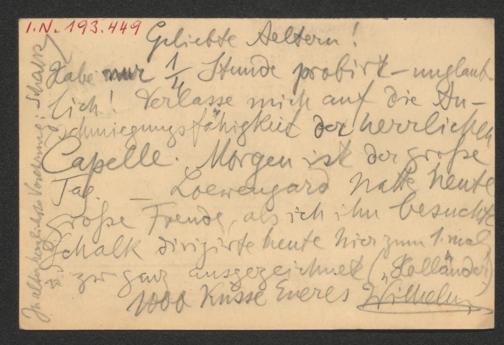 I.N. 193.449
Geliebte Aeltern!
Habe nur 1/4 Stunde probirt – unglaub
lich! Verlasse mich auf die An-
schmiegungsfähigkeit der herrlichen
Capelle. Morgen ist der große
Tag – Loewengard hatte heute
große Freude, als ich ihn besuchte
Schalk dirigirte heute hier zum 1. mal
zwar ganz ausgezeichnet („Holländer“)
1000 Küsse Eueres Wilhelm